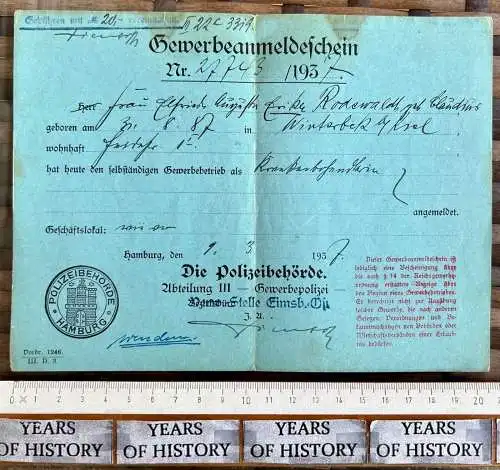 Gebühren mit RM 20,-
III 22c 3319
Gewerbeanmeldeschein
Nr. 27743 /1937.
Herr Frau Elfriede Auguste Rodewaldt, geb. Claudius
geboren am 31. 8. 87 in Winterbek b/ Kiel
wohnhaft
hat heute den selbständigen Gewerbebetrieb als Krankenbehandlerin
angemeldet.
Geschäftslokal: wie vor
Hamburg, den 9. 3. 1937.
Die Polizeibehörde.
Abteilung III — Gewerbepolizei
Stelle Eimsb.
I. A.
wenden.
POLIZEIBEHÖRDE
HAMBURG
Vordr. 1246
III. D. 3
Dieser Gewerbeanmeldeschein ist
lediglich eine Bescheinigung über
die nach § 14 der Reichsgewerbe-
ordnung erstattete Anzeige über
den Beginn eines Gewerbebetriebes.
Er berechtigt nicht zur Ausübung
solcher Gewerbe, die nach anderen
Gesetzen, Verordnungen und Be-
kanntmachungen den Behörden oder
Wirtschaftsverbänden einer Erlaubnis
bedürfen.
0 1 2 3 4 5 6 7 8 9 10 11 12 13 14 15 16 17 18 19 20
YEARS OF HISTORY
YEARS OF HISTORY
YEARS OF HISTORY
YEARS OF HISTORY